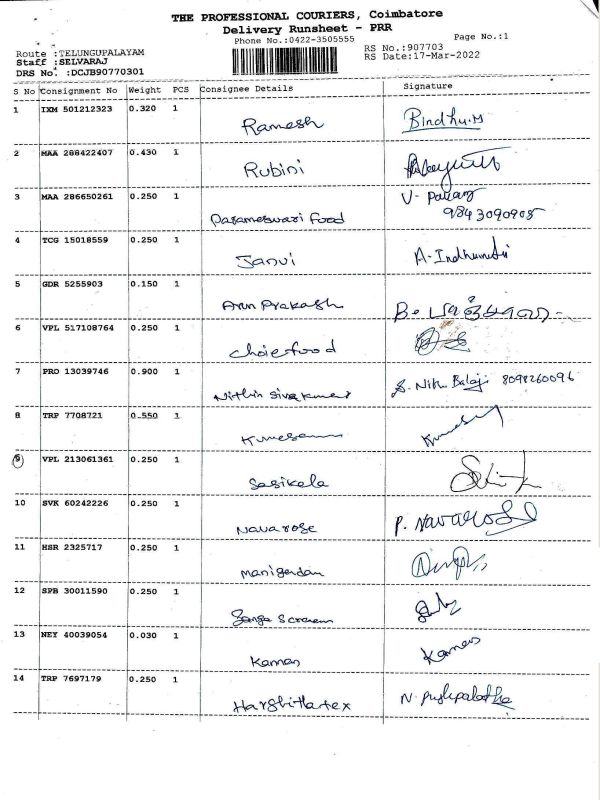 THE PROFESSIONAL COURIERS, Coimbatore
Delivery Runsheet - PRR
Phone No.:0422-3505555
Page No.:1
Route :TELUNGUPALAYAM
Staff :SELVARAJ
DRS No. :DCJB90770301
RS No.:907703
RS Date:17-Mar-2022
S No Consignment No Weight PCS Consignee Details Signature
1 IXM 501212323 0.320 1 Ramesh Bindhu.M
2 MAA 288422407 0.430 1 Rubini
3 MAA 286650261 0.250 1 Parameswari food V- Pavang
9843090905
4 TCG 15018559 0.250 1 Janvi A-Indhumathi
5 GDR 5255903 0.150 1 Arun Prakash
6 VPL 517108764 0.250 1 choice food
7 PRO 13039746 0.900 1 Nithin Siva kumar 8098260096
8 TRP 7708721 0.550 1
9 VPL 213061361 0.250 1 Sasikala
10 SVK 60242226 0.250 1 Navarose P. Navarose
11 HSR 2325717 0.250 1 Manigandan
12 SPB 30011590 0.250 1
13 NEY 40039054 0.030 1 Kaman
14 TRP 7697179 0.250 1 Harshitha tex N. Pushpalatha